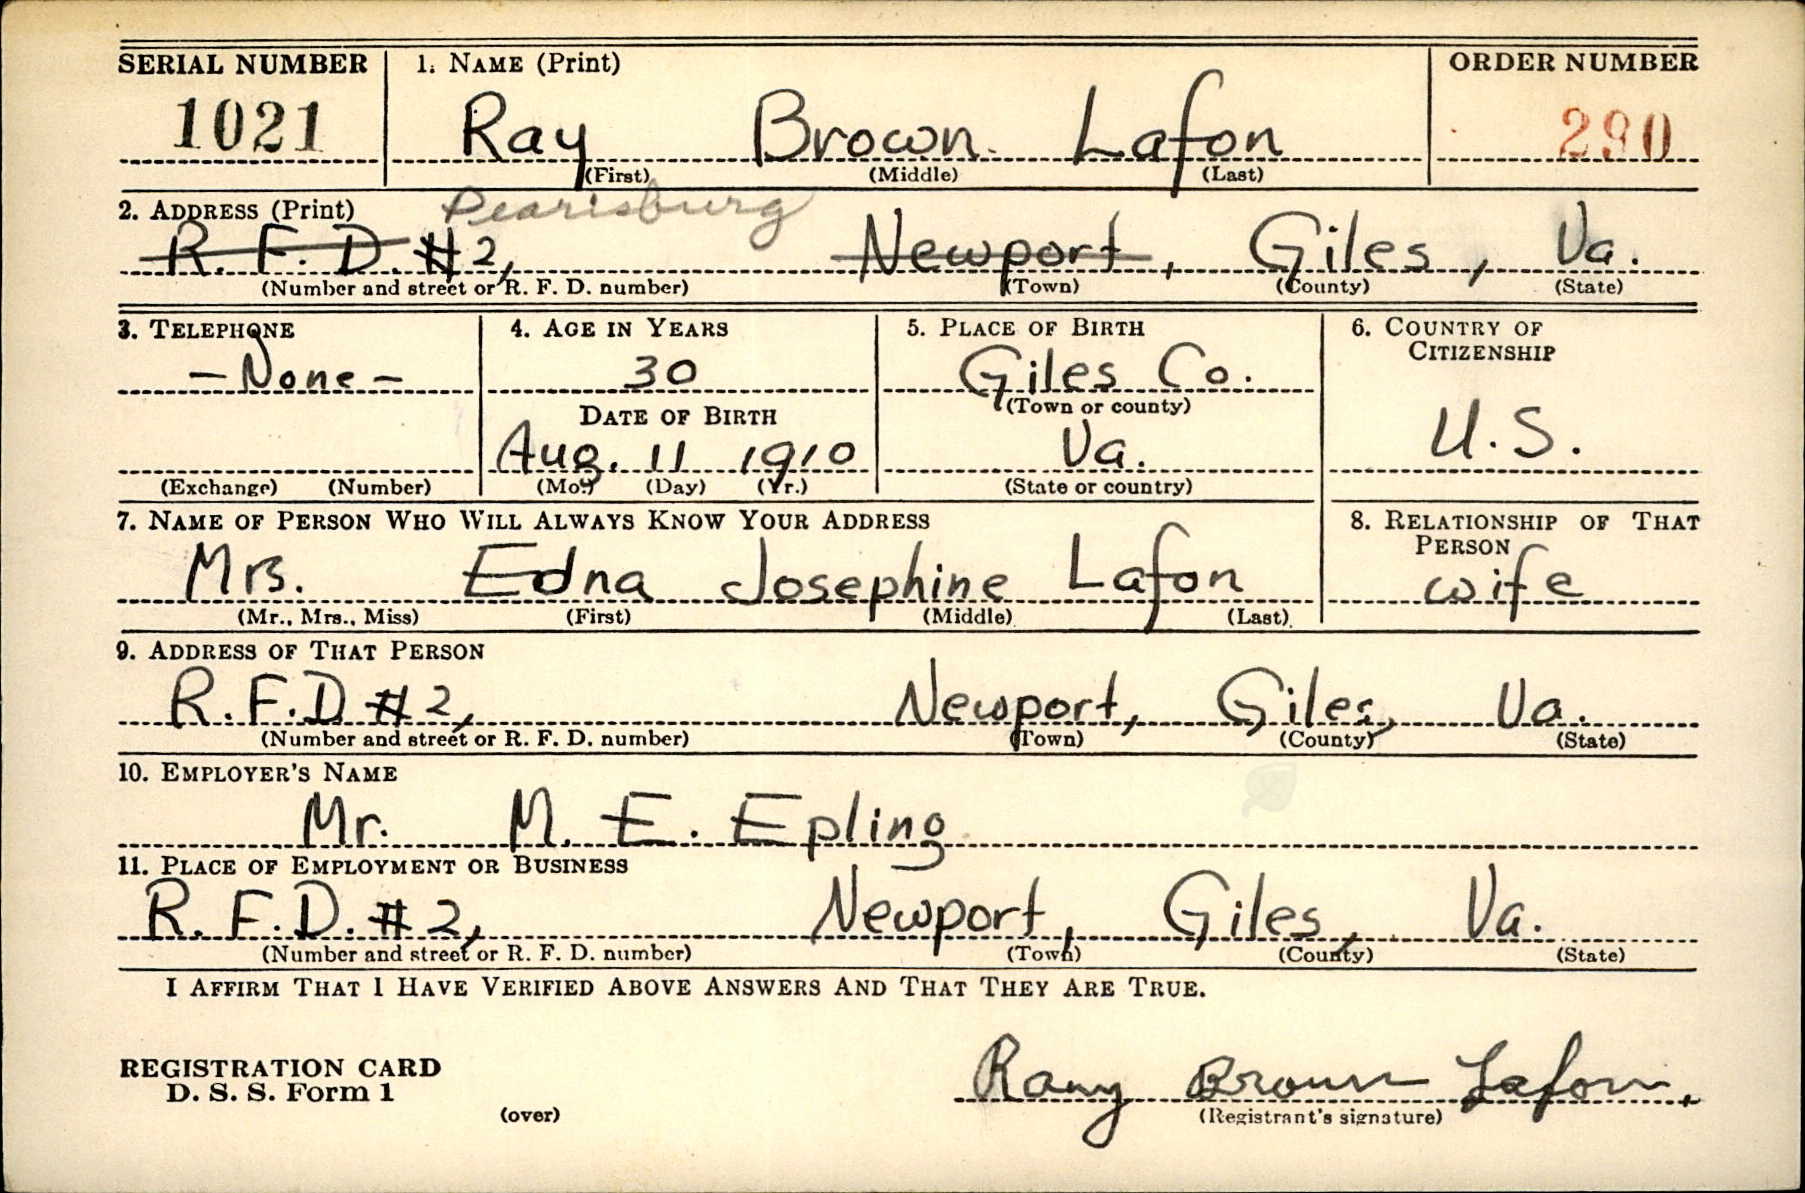 SERIAL NUMBER 1. NAME (Print) ORDER NUMBER
1021 Ray Brown Lafon 290
(First) (Middle) (Last)
2. ADDRESS (Print) Pearisburg
R. F. D. #2, Newport, Giles, Va.
(Number and street or R. F. D. number) (Town) (County) (State)
3. TELEPHONE 4. AGE IN YEARS 5. PLACE OF BIRTH 6. COUNTRY OF CITIZENSHIP
- None - 30 Giles Co.
DATE OF BIRTH (Town or county)
Aug. 11 1910 Va. U.S.
(Exchange) (Number) (Mo.) (Day) (Yr.) (State or country)
7. NAME OF PERSON WHO WILL ALWAYS KNOW YOUR ADDRESS 8. RELATIONSHIP OF THAT PERSON
Mrs. Edna Josephine Lafon wife
(Mr., Mrs., Miss) (First) (Middle) (Last)
9. ADDRESS OF THAT PERSON
R.F.D #2, Newport, Giles, Va.
(Number and street or R. F. D. number) (Town) (County) (State)
10. EMPLOYER'S NAME
Mr. M. E. Epling
11. PLACE OF EMPLOYMENT OR BUSINESS
R. F. D. #2, Newport, Giles, Va.
(Number and street or R. F. D. number) (Town) (County) (State)
I AFFIRM THAT I HAVE VERIFIED ABOVE ANSWERS AND THAT THEY ARE TRUE.
REGISTRATION CARD
D. S. S. Form 1
Ray Brown Lafon.
(over) (Registrant's signature)